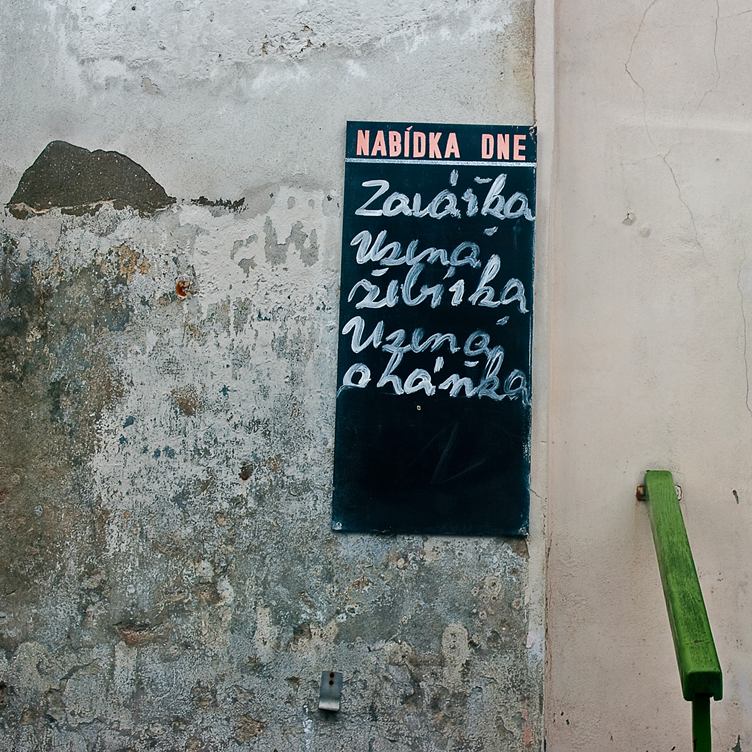 NABÍDKA DNE
Zavářka
Uzená
žebírka
Uzená
oháňka